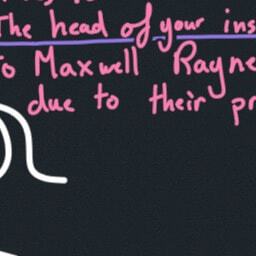 The head of your ins
to Maxwell Rayne
due to their pr